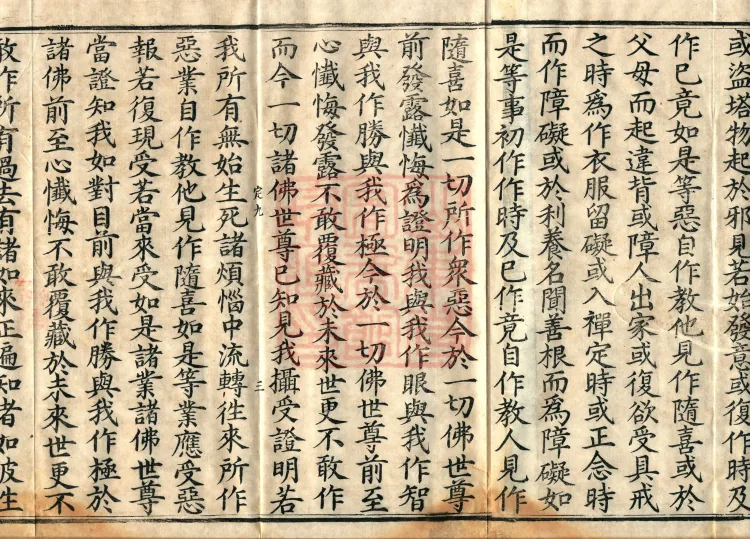 或盜塔物起於邪見若始發意或復作時及
作已竟如是等惡自作教他見作隨喜或於
父母而起違背或障人出家或復欲受具戒
之時爲作衣服留礙或入禪定時或正念時
而作障礙或於利養名聞善根而爲障礙如
是等事初作作時及已作竟自作教人見作
隨喜如是一切所作衆惡今於一切佛世尊
前發露懺悔爲證明我與我作眼與我作智
與我作勝與我作極今於一切佛世尊前至
心懺悔發露不敢覆藏於未來世更不敢作
而今一切諸佛世尊已知見我攝受證明若
定九 三
我所有無始生死諸煩惱中流轉徃來所作
惡業自作教他見作隨喜如是等業應受惡
報若復現受若當來受如是諸業諸佛世尊
當證知我如對目前與我作勝與我作極於
諸佛前至心懺悔不敢覆藏於未來世更不
敢作所有過去有諸如來正遍知者如彼生